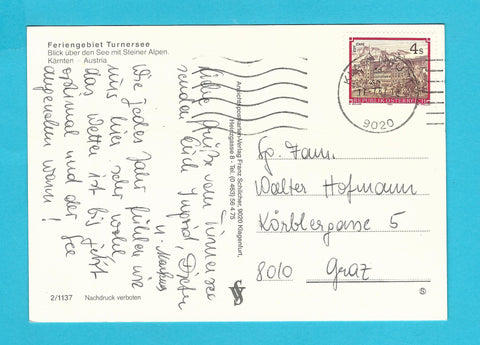 Feriengebiet Turnersee
Blick über den See mit Steiner Alpen.
Kärnten - Austria
Liebe Grüße vom Turnersee
senden Euch Ingrid, Dieter
u. Markus
Wie jedes Jahr fühlen wir
uns hier sehr wohl,
das Wetter ist bis jetzt
optimal und der See
angenehm warm!
Ansichtskartenverlag Franz Schilcher, 9020 Klagenfurt,
Herrengasse 8 - Tel. (0 463) 56 4 75
4 S
REPUBLIK ÖSTERREICH
9020
Fam.
Walter Hofmann
Körblergasse 5
8010 Graz
2/1137 Nachdruck verboten